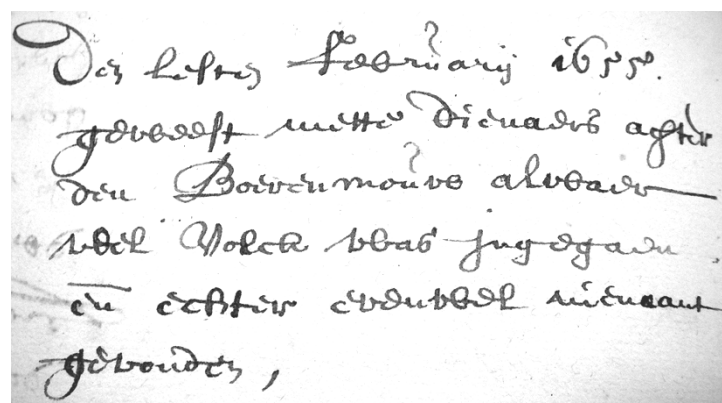 Den lesten Februarij 1655.
geweest mette dienaers achter
den Boerenmouwe alwaer
wel Volck was ingegaen
en echter evenwel niemant
gevonden,